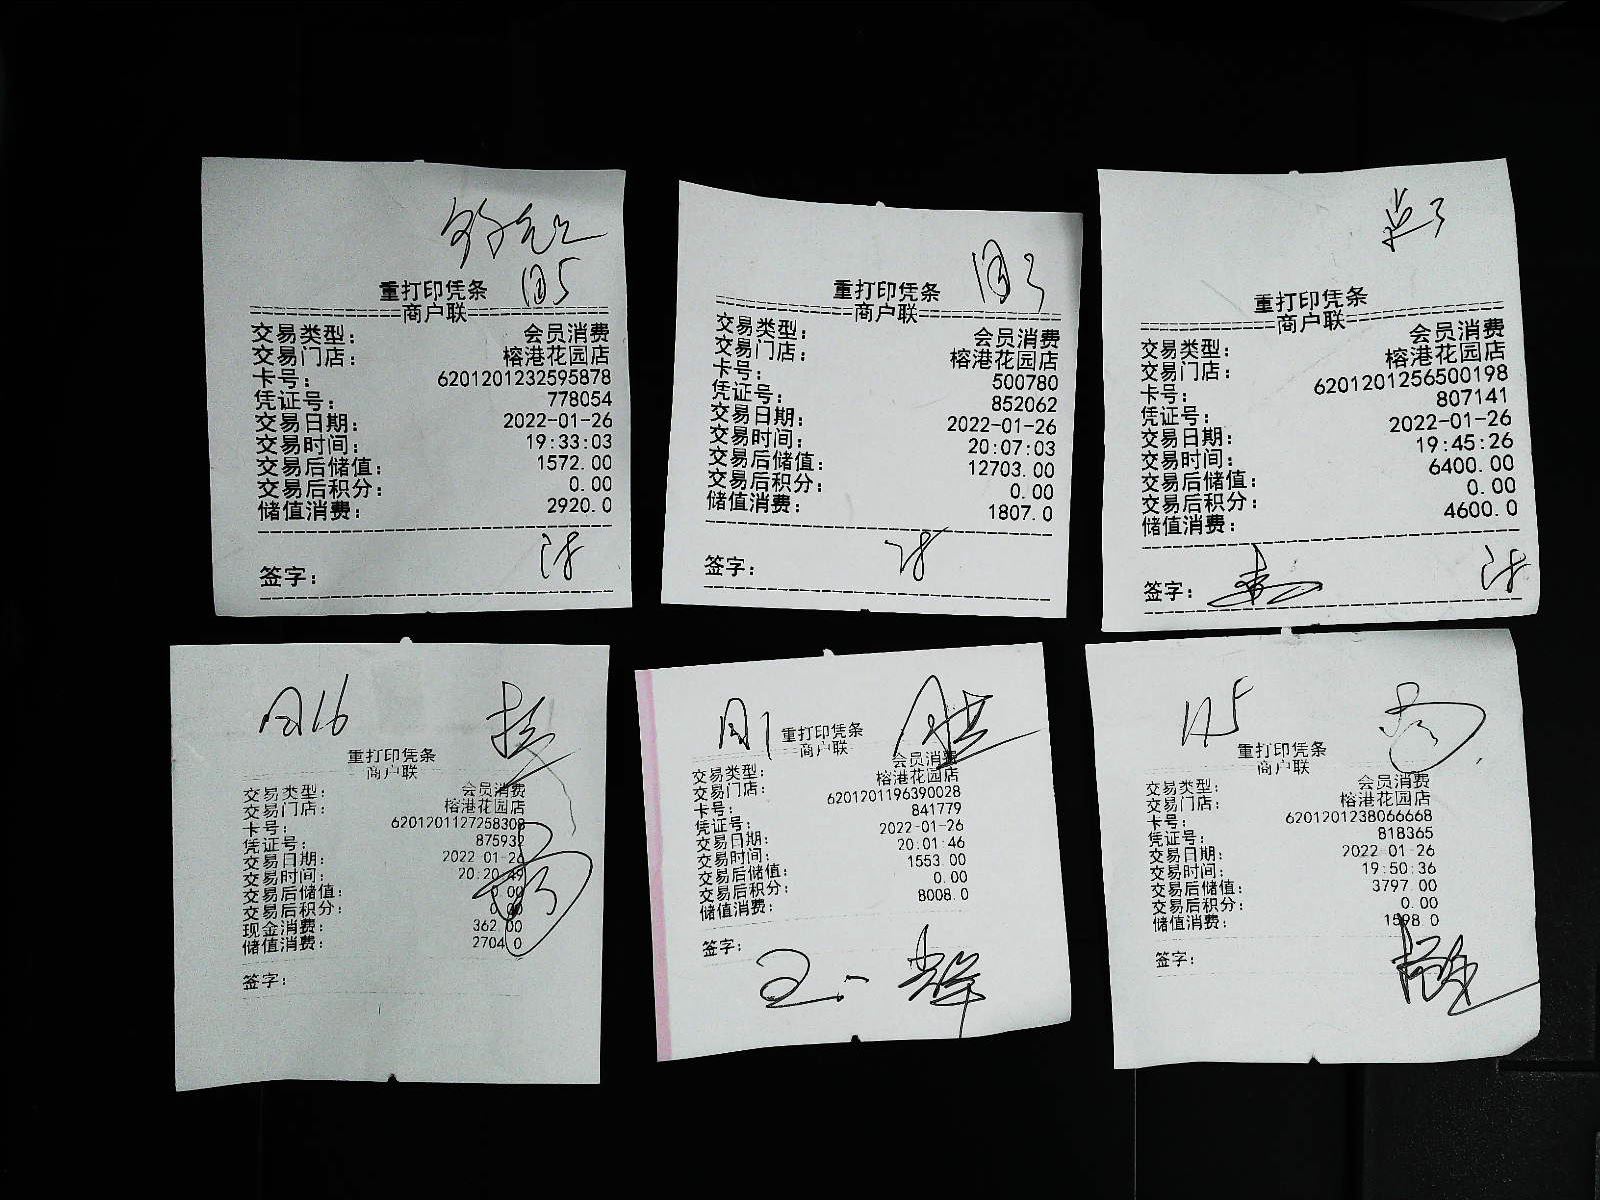 园5
重打印凭条
商户联
交易类型： 会员消费
交易门店： 榕港花园店
卡号： 6201201232595878
凭证号： 778054
交易日期： 2022-01-26
交易时间： 19:33:03
交易后储值： 1572.00
交易后积分： 0.00
储值消费： 2920.0
签字：
重打印凭条
商户联
交易类型： 会员消费
交易门店： 榕港花园店
卡号： 500780
凭证号： 852062
交易日期： 2022-01-26
交易时间： 20:07:03
交易后储值： 12703.00
交易后积分： 0.00
储值消费： 1807.0
签字：
重打印凭条
商户联
交易类型： 会员消费
交易门店： 榕港花园店
卡号： 6201201256500198
凭证号： 807141
交易日期： 2022-01-26
交易时间： 19:45:26
交易后储值： 6400.00
交易后积分： 0.00
储值消费： 4600.0
签字：
重打印凭条
商户联
交易类型： 会员消费
交易门店： 榕港花园店
卡号： 6201201127258308
凭证号： 875932
交易日期： 2022-01-26
交易时间： 20:20:49
交易后储值： 0.00
交易后积分： 0.00
现金消费： 362.00
储值消费： 2704.0
签字：
重打印凭条
商户联
交易类型： 会员消费
交易门店： 榕港花园店
卡号： 6201201196390028
凭证号： 841779
交易日期： 2022-01-26
交易时间： 20:01:46
交易后储值： 1553.00
交易后积分： 0.00
储值消费： 8008.0
签字：
重打印凭条
商户联
交易类型： 会员消费
交易门店： 榕港花园店
卡号： 6201201238066668
凭证号： 818365
交易日期： 2022-01-26
交易时间： 19:50:36
交易后储值： 3797.00
交易后积分： 0.00
储值消费： 1598.0
签字：